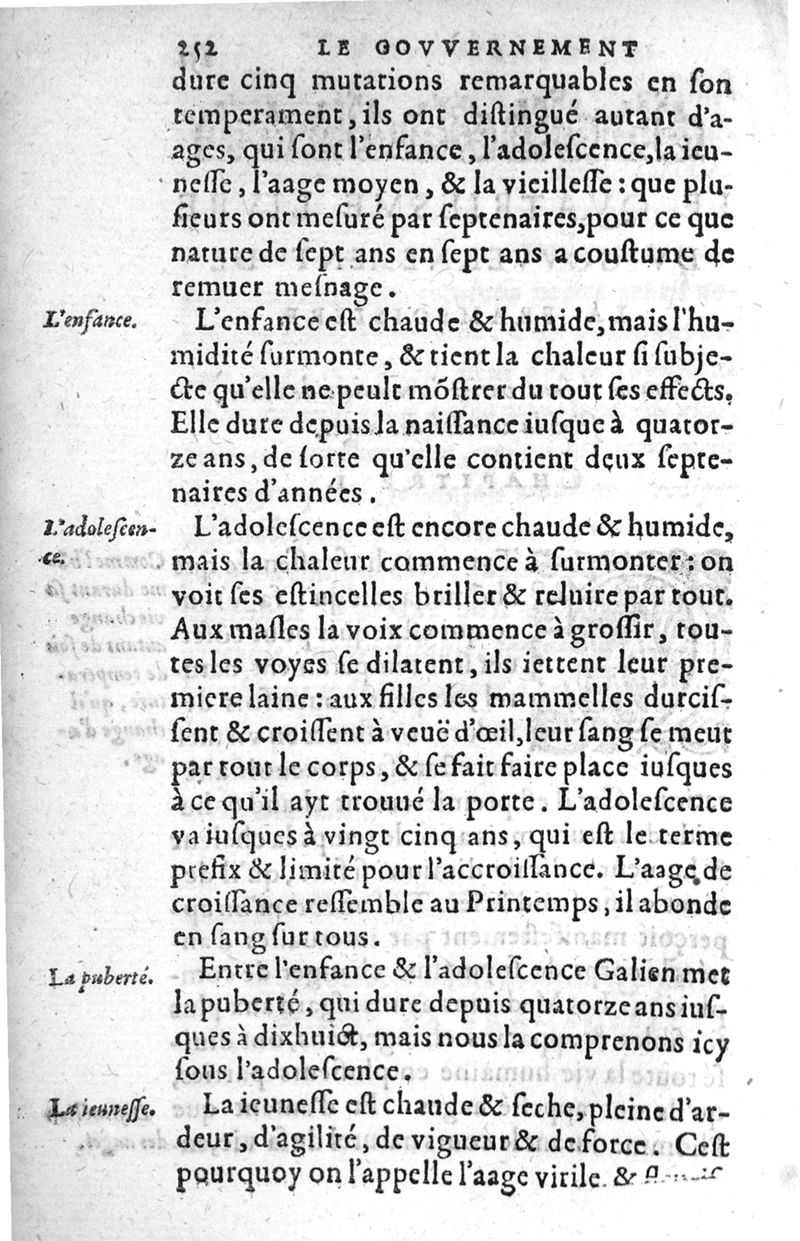 252 LE GOVVERNEMENT
dure cinq mutations remarquables en ſon
temperament, ils ont diſtingué autant d'a-
ages, qui ſont l'enfance, l'adoleſcence, la ieu-
neſſe, l'aage moyen, & la vieilleſſe : que plu-
ſieurs ont meſuré par ſeptenaires, pour ce que
nature de ſept ans en ſept ans a couſtume de
remuer meſnage.
L'enfance.
L'enfance eſt chaude & humide, mais l'hu-
midité ſurmonte, & tient la chaleur ſi ſubje-
cte qu'elle ne peult mõſtrer du tout ſes effects.
Elle dure depuis la naiſſance iuſque à quator-
ze ans, de ſorte qu'elle contient deux ſepte-
naires d'années.
L'adoleſcen-
ce.
L'adoleſcence eſt encore chaude & humide,
mais la chaleur commence à ſurmonter : on
voit ſes eſtincelles briller & reluire par tout.
Aux maſles la voix commence à groſſir, tou-
tes les voyes ſe dilatent, ils iettent leur pre-
miere laine : aux filles les mammelles durciſ-
ſent & croiſſent à veuë d'œil, leur ſang ſe meut
par tout le corps, & ſe fait faire place iuſques
à ce qu'il ayt trouué la porte. L'adoleſcence
va iuſques à vingt cinq ans, qui eſt le terme
prefix & limité pour l'accroiſſance. L'aage de
croiſſance reſſemble au Printemps, il abonde
en ſang ſur tous.
La puberté.
Entre l'enfance & l'adoleſcence Galien met
la puberté, qui dure depuis quatorze ans iuſ-
ques à dixhuict, mais nous la comprenons icy
ſous l'adoleſcence.
La ieuneſſe.
La ieuneſſe eſt chaude & ſeche, pleine d'ar-
deur, d'agilité, de vigueur & de force. Ceſt
pourquoy on l'appelle l'aage virile. &